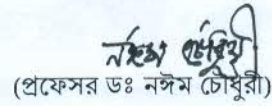 নঈম চৌধুরী
(প্রফেসর ডঃ নঈম চৌধুরী)